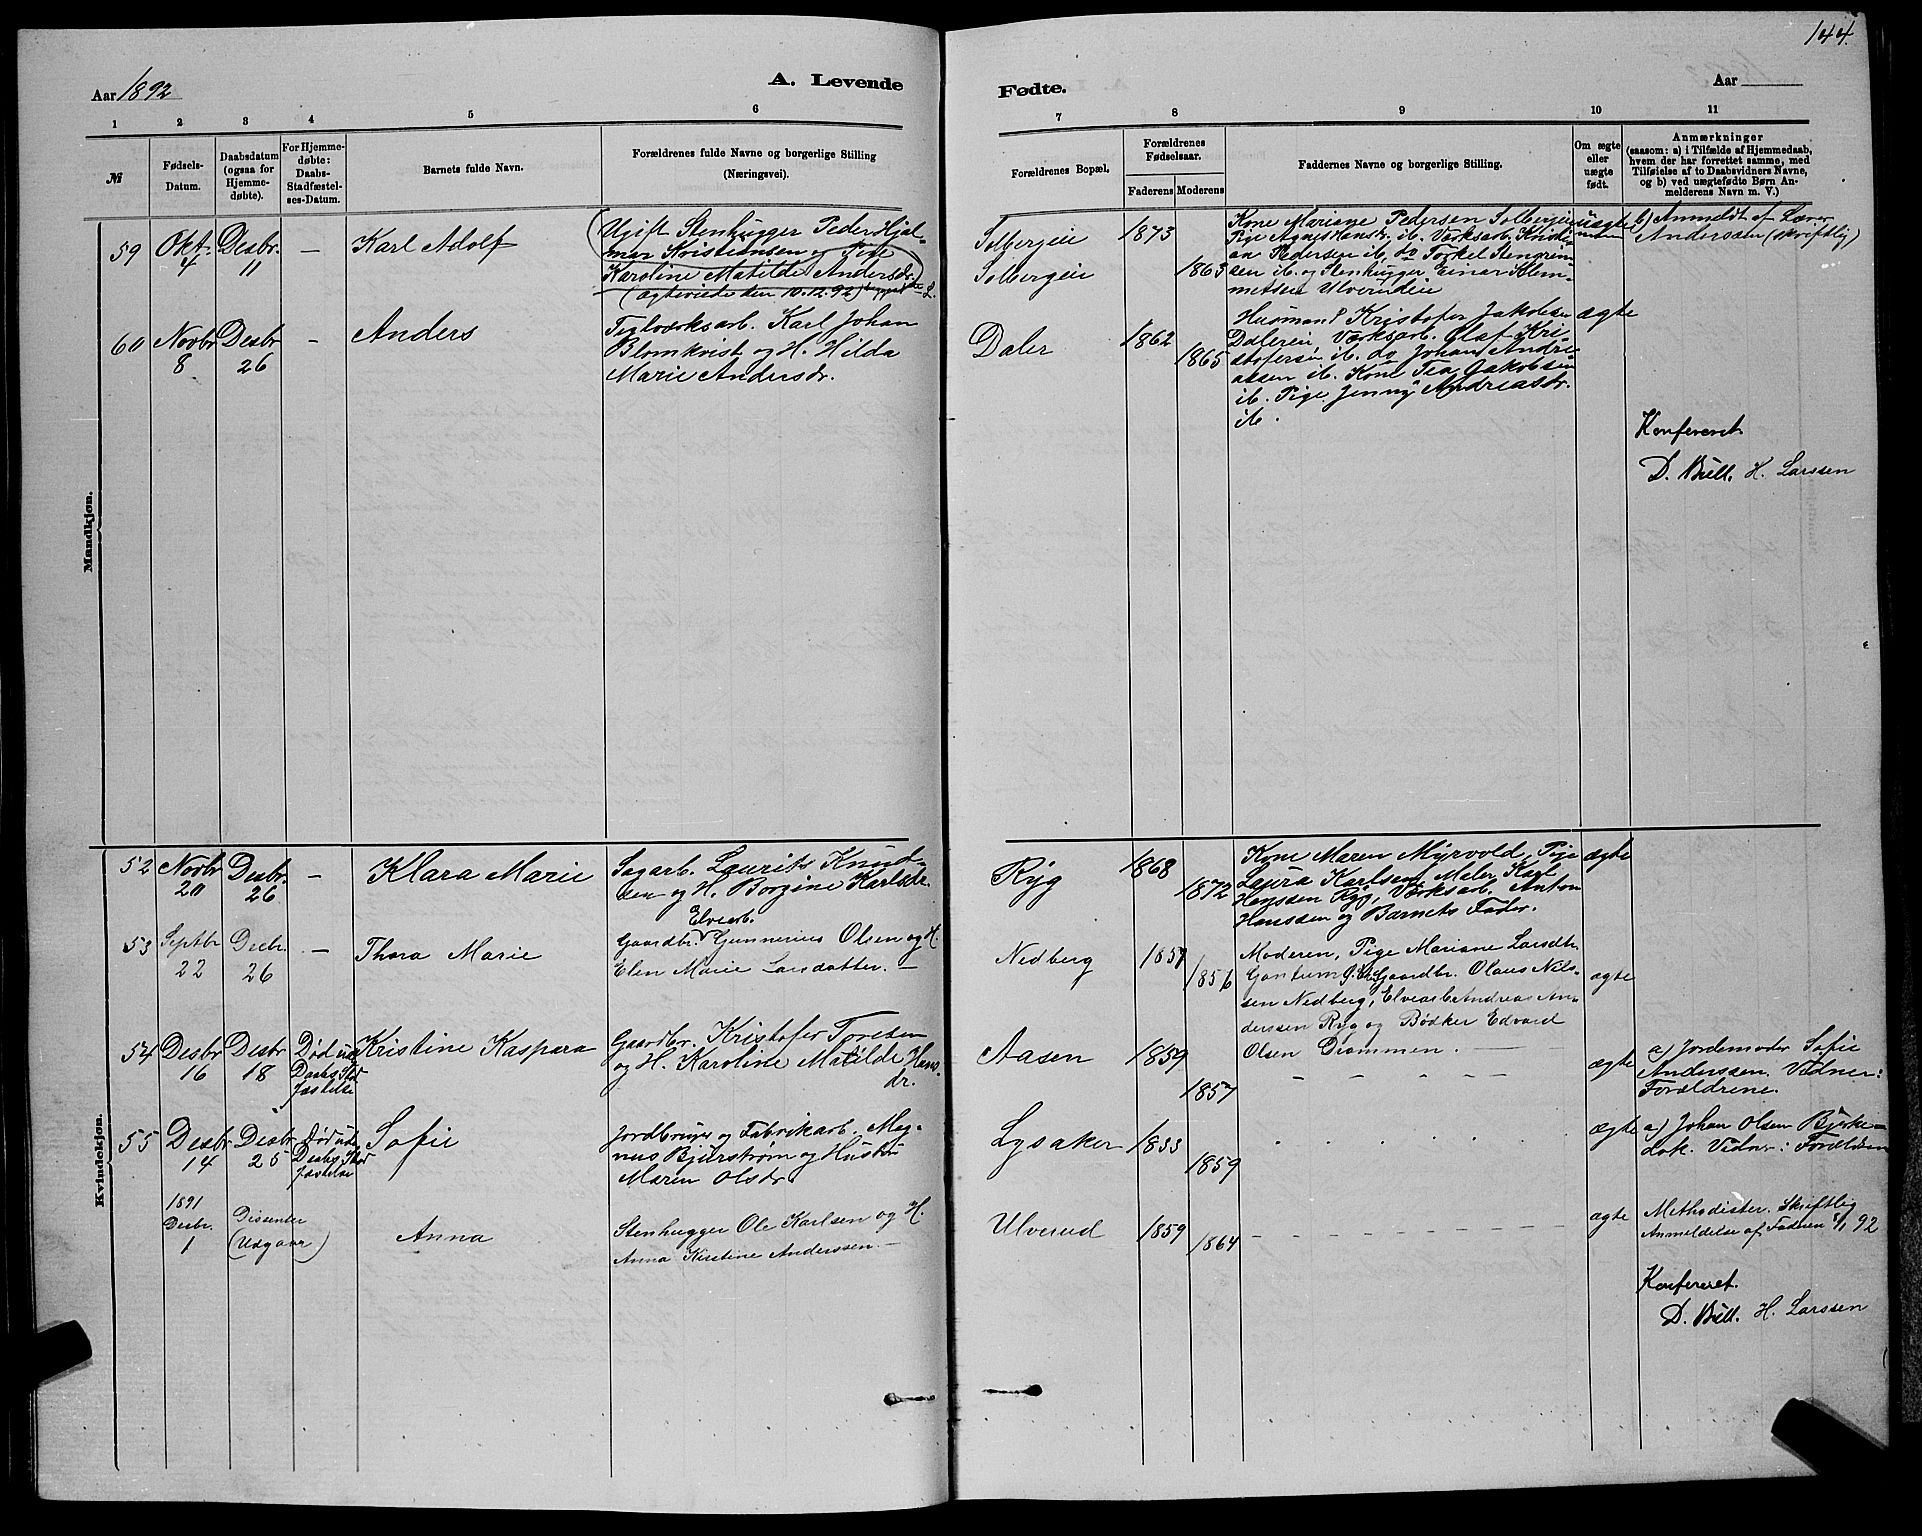 144.
Aar 1892
A. Levende
Fødte.
Aar
1
2
3
4
5
6
7
8
9
10
11
№
Fødsels-
Datum.
Daabsdatum
(ogsaa for
Hjemme-
døbte).
For Hjemme-
døbte:
Daabs-
Stadfæstel-
ses-Datum.
Barnets fulde Navn.
Forældrenes fulde Navne og borgerlige Stilling
(Næringsvei).
Forældrenes Bopæl.
Forældrenes
Fødselsaar.
Faderens
Moderens
Faddernes Navne og borgerlige Stilling.
Om ægte
eller
uægte
født.
Anmærkninger
(saasom: a) i Tilfælde af Hjemmedaab,
hvem der har forrettet samme, med
Tilføielse af to Daabsvidners Navne,
og b) ved uægtefødte Børn An-
melderens Navn m. V.)
Mandkjøn.
59
Okt.
4
Desbr.
11
—
Karl Adolf
Ugift Stenhugger Peder Hjal-
mar Kristiansen og Pige
Karoline Matilde Andersdr.
(ægteviede den 10.12.92)
Solbergeie
Solbergeie
1873
1863
Kone Mariane Pedersen Solbergeie
Pige Agnes Hansdr. ib. Værksarb. Kristi-
an Pedersen ib. do Torkel Stengrim-
sen ib. og Stenhugger Einar Klem-
metsen Ulverudeie
uægte
b) Anmeldt af Lærer
Andersen (skriftlig)
60
Novbr
8
Desbr
26
-
Anders
Teglværksarb. Karl Johan
Blomkvist og H. Hilda
Marie Andersdr.
Daler
1862
1865
Husmand Kristofer Jakobsen
Dalereie, Værksarb. Olaf Kri-
stofersen ib. do Johan Andre-
assen ib. Kone Tea Jakobsen
ib. Pige Jenny Andreasdr.
ib.
ægte
Konfereret
D. Bull. H. Larssen
Kvindekjøn.
52
Novbr
20
Desbr.
26
—
Klara Marie
Sagarb. Laurits Knud-
sen og H. Borgine Karlsdr.
Ryg
1868
1872
Kone Maren Myrvold, Pige
Laura Karlsen, Maler Karl
Hanssen Ryg, Værksarb. Anton
Hanssen og Barnets Fader.
ægte
53
Septbr
22
Decbr.
26
—
Thora Marie
Elvearb.
Gaardbr. Gunnerius Olsen og H.
Elen Marie Larsdatter. —
Nedberg
1857
1856
Moderen, Pige Mariane Larsdtr.
Gaardbr. Olaus Nils-
sen Nedberg, Elvearb Andreas An-
derssen Ryg og Bødker Edvard
Olsen Drammen. —
ægte
54
Desbr
16
Desbr
18
Død uden
Daabs Stad
fæstelse
Kristine Kaspara
Gaardbr. Kristofer Toresen
og H. Karoline Matilde Hans-
dr.
Aasen
1859
1857
ægte
a) Jordemoder Sofie
Anderssen. Vidner:
Forældrene.
55
Desbr
14
Desbr
25
Død uden
Daabs Stad
fæstelse
Sofie
Jordbruger og Fabrikarb. Mag-
nus Bjurstrøm og Hustru
Maren Olsdr
Lysaker
1833
1859
ægte
a) Johan Olsen Bjerke-
dok. Vidner: Forældrene
1891
Decbr.
1
Dissenter
(Udgaar)
Anna
Stenhugger Ole Karlsen og H.
Anna Kirstine Anderssen. —
Ulverud
1859
1864
ægte
Methodister. Skriftlig
Anmeldelse af Faderen 92
Konfereret.
D. Bull. H. Larssen